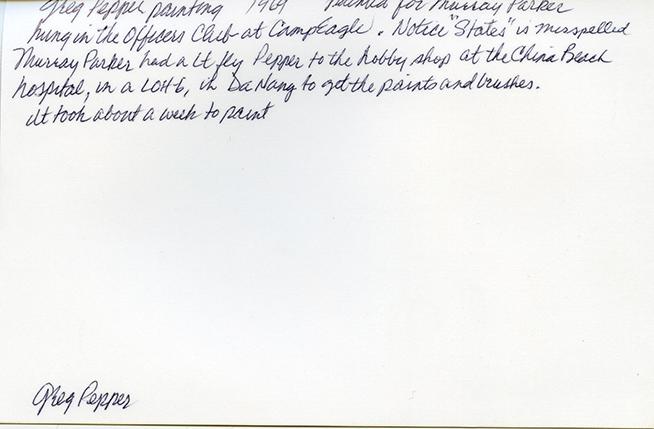 Greg Pepper painting 1969 Painted for Murray Parker
hung in the Officers Club at Camp Eagle. Notice "States" is misspelled
Murray Parker had a Lt fly Pepper to the hobby shop at the China Beach
hospital, in a LOH 6, in Da Nang to get the paints and brushes.
it took about a week to paint
Greg Pepper